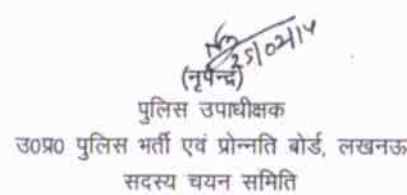 25/02/14
(नृपेन्द्र)
पुलिस उपाधीक्षक
उ0प्र0 पुलिस भर्ती एवं प्रोन्नति बोर्ड, लखनऊ
सदस्य चयन समिति